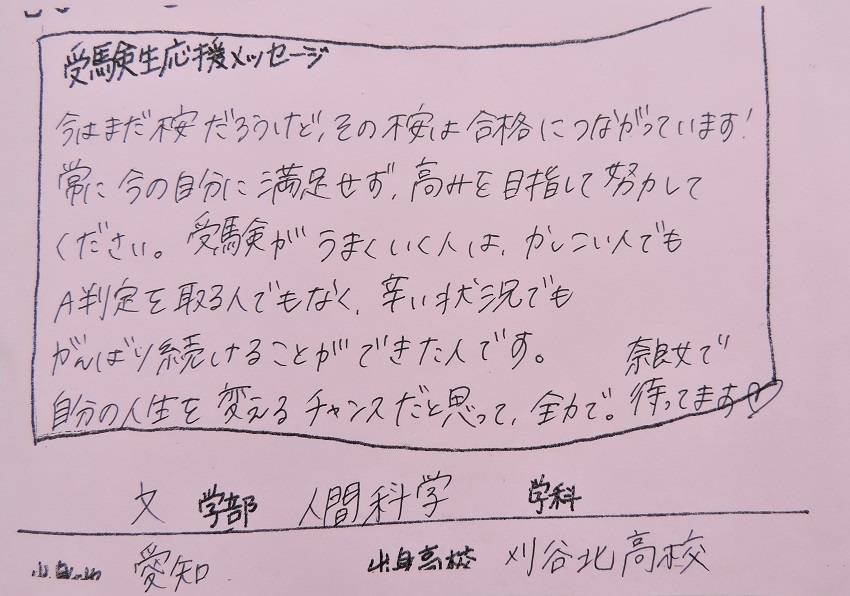 受験生応援メッセージ
今はまだ不安だろうけど、その不安は合格につながっています!
常に今の自分に満足せず、高みを目指して努力して
ください。受験がうまくいく人は、かしこい人でも
A判定を取る人でもなく、辛い状況でも
がんばり続けることができた人です。
自分の人生を変えるチャンスだと思って、全力で。奈良女で
待ってます♡
文 学部 人間科学 学科
愛知 出身高校 刈谷北高校